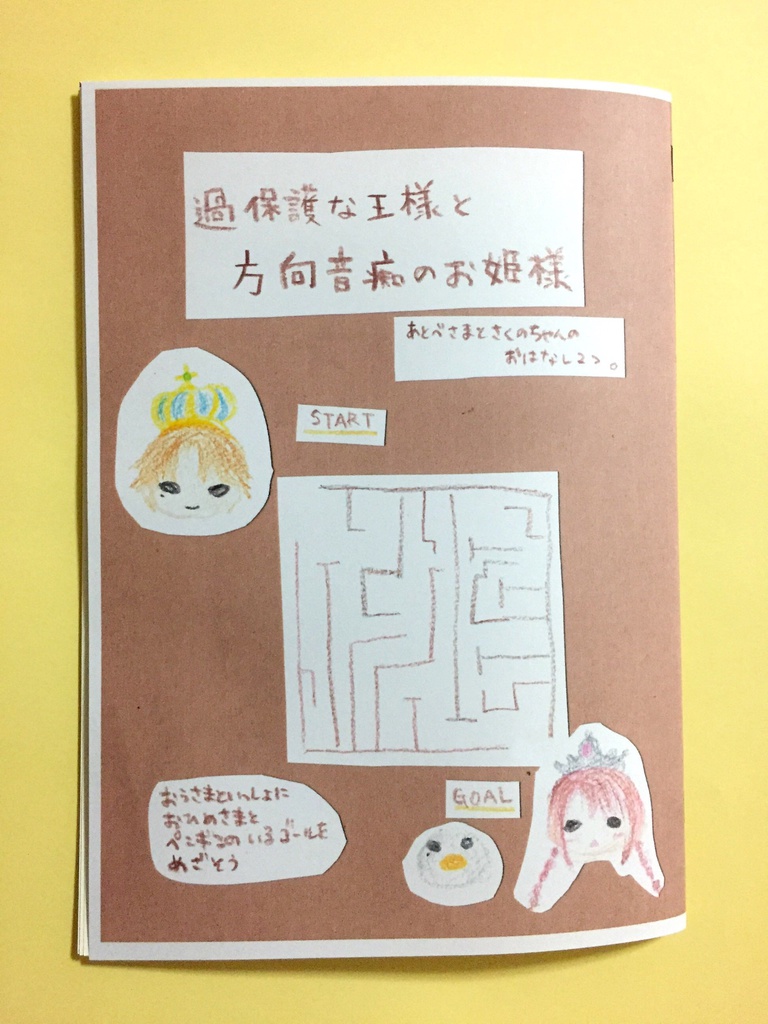 過保護な王様と
方向音痴のお姫様
あとべさまとさくのちゃんの
おはなし2つ。
START
おうさまといっしょに
おひめさまと
ペンギンのいるゴールを
めざそう
GOAL